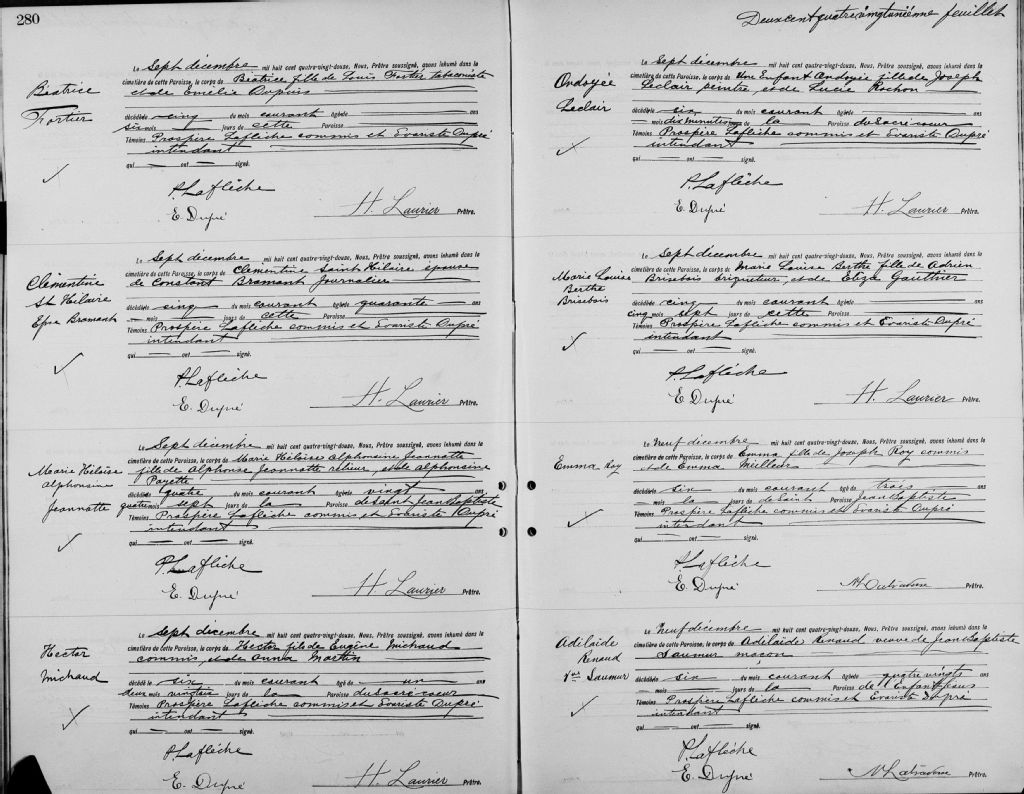 280
Beatrice
Fortier
Le Sept décembre mil huit cent quatre-vingt-douze, Nous, Prêtre soussigné, avons inhumé dans le
cimetière de cette Paroisse, le corps de Béatrice fille de Louis Fortier tabaconiste
et de Emélie Dupuis
décédée cinq du mois courant âgée de
six mois jours de cette Paroisse
Témoins Prospère Laflèche commis et Evariste Dupré
intendant
qui ont signé.
P. Laflèche
E. Dupré H. Laurier Prêtre.
Clémentine
St Hilaire
Epse Bramant
Le Sept décembre mil huit cent quatre-vingt-douze, Nous, Prêtre soussigné, avons inhumé dans le
cimetière de cette Paroisse, le corps de Clémentine Saint Hilaire épouse
de Constant Bramant Journalier
décédée cinq du mois courant âgée de quarante ans
mois jours de cette Paroisse
Témoins Prospère Laflèche commis et Evariste Dupré
intendant
qui ont signé.
P. Laflèche
E. Dupré H. Laurier Prêtre.
Marie Héloïse
Alphonsine
Jeannatte
Le Sept décembre mil huit cent quatre-vingt-douze, Nous, Prêtre soussigné, avons inhumé dans le
cimetière de cette Paroisse, le corps de Marie Héloïse Alphonsine Jeannatte
fille de Alphonse Jeannatte relieur, et de Alphonsine
Payette
décédée quatre du mois courant âgée de vingt
quatre mois sept jours de la Paroisse de Saint Jean Baptiste
Témoins Prospère Laflèche commis et Evariste Dupré
intendant
qui ont signé.
P. Laflèche
E. Dupré H. Laurier Prêtre.
Hector
Michaud
Le Sept décembre mil huit cent quatre-vingt-douze, Nous, Prêtre soussigné, avons inhumé dans le
cimetière de cette Paroisse, le corps de Hector fils de Eugène Michaud
commis, et de Anna Martin
décédé le six du mois courant âgé de un an
deux mois jours de la Paroisse du Sacré-coeur
Témoins Prospère Laflèche commis et Evariste Dupré
intendant
qui ont signé.
P. Laflèche
E. Dupré H. Laurier Prêtre.
Deux cent quatre vingt unième feuillet
Ondoyée
Leclair
Le Sept décembre mil huit cent quatre-vingt-douze, Nous, Prêtre soussigné, avons inhumé dans le
cimetière de cette Paroisse, le corps de Une Enfant Ondoyée fille de Joseph
Leclair peintre, et de Lucie Rochon
décédée six du mois courant âgée de
mois dix minutes jours de la Paroisse du Sacré coeur
Témoins Prospère Laflèche commis et Evariste Dupré
intendant
qui ont signé.
P. Laflèche
E. Dupré H. Laurier Prêtre.
Marie Louise
Berthe
Brisebois
Le Sept décembre mil huit cent quatre-vingt-douze, Nous, Prêtre soussigné, avons inhumé dans le
cimetière de cette Paroisse, le corps de Marie Louise Berthe fille de Adrien
Brisebois briqueteur, et de Eliza Gauthier
décédée cinq du mois courant âgée de
cinq mois sept jours de cette Paroisse
Témoins Prospère Laflèche commis et Evariste Dupré
intendant
qui ont signé.
P. Laflèche
E. Dupré H. Laurier Prêtre.
Emma Roy
Le Neuf décembre mil huit cent quatre-vingt-douze, Nous, Prêtre soussigné, avons inhumé dans le
cimetière de cette Paroisse, le corps de Emma fille de Joseph Roy commis
et de Emma
décédée six du mois courant âgée de trois ans
mois la jours de de Saint Paroisse Jean Baptiste
Témoins Prospère Laflèche commis et Evariste Dupré
intendant
qui ont signé.
P. Laflèche
E. Dupré Prêtre.
Adélaïde
Renaud
Vve Saumur
Le Neuf décembre mil huit cent quatre-vingt-douze, Nous, Prêtre soussigné, avons inhumé dans le
cimetière de cette Paroisse, le corps de Adélaïde Renaud veuve de Jean Baptiste
Saumur maçon
décédée six du mois courant âgée de quatre vingts ans
mois jours de la Paroisse de
Témoins Prospère Laflèche commis et Evariste Dupré
intendant
qui ont signé.
P. Laflèche
E. Dupré Prêtre.